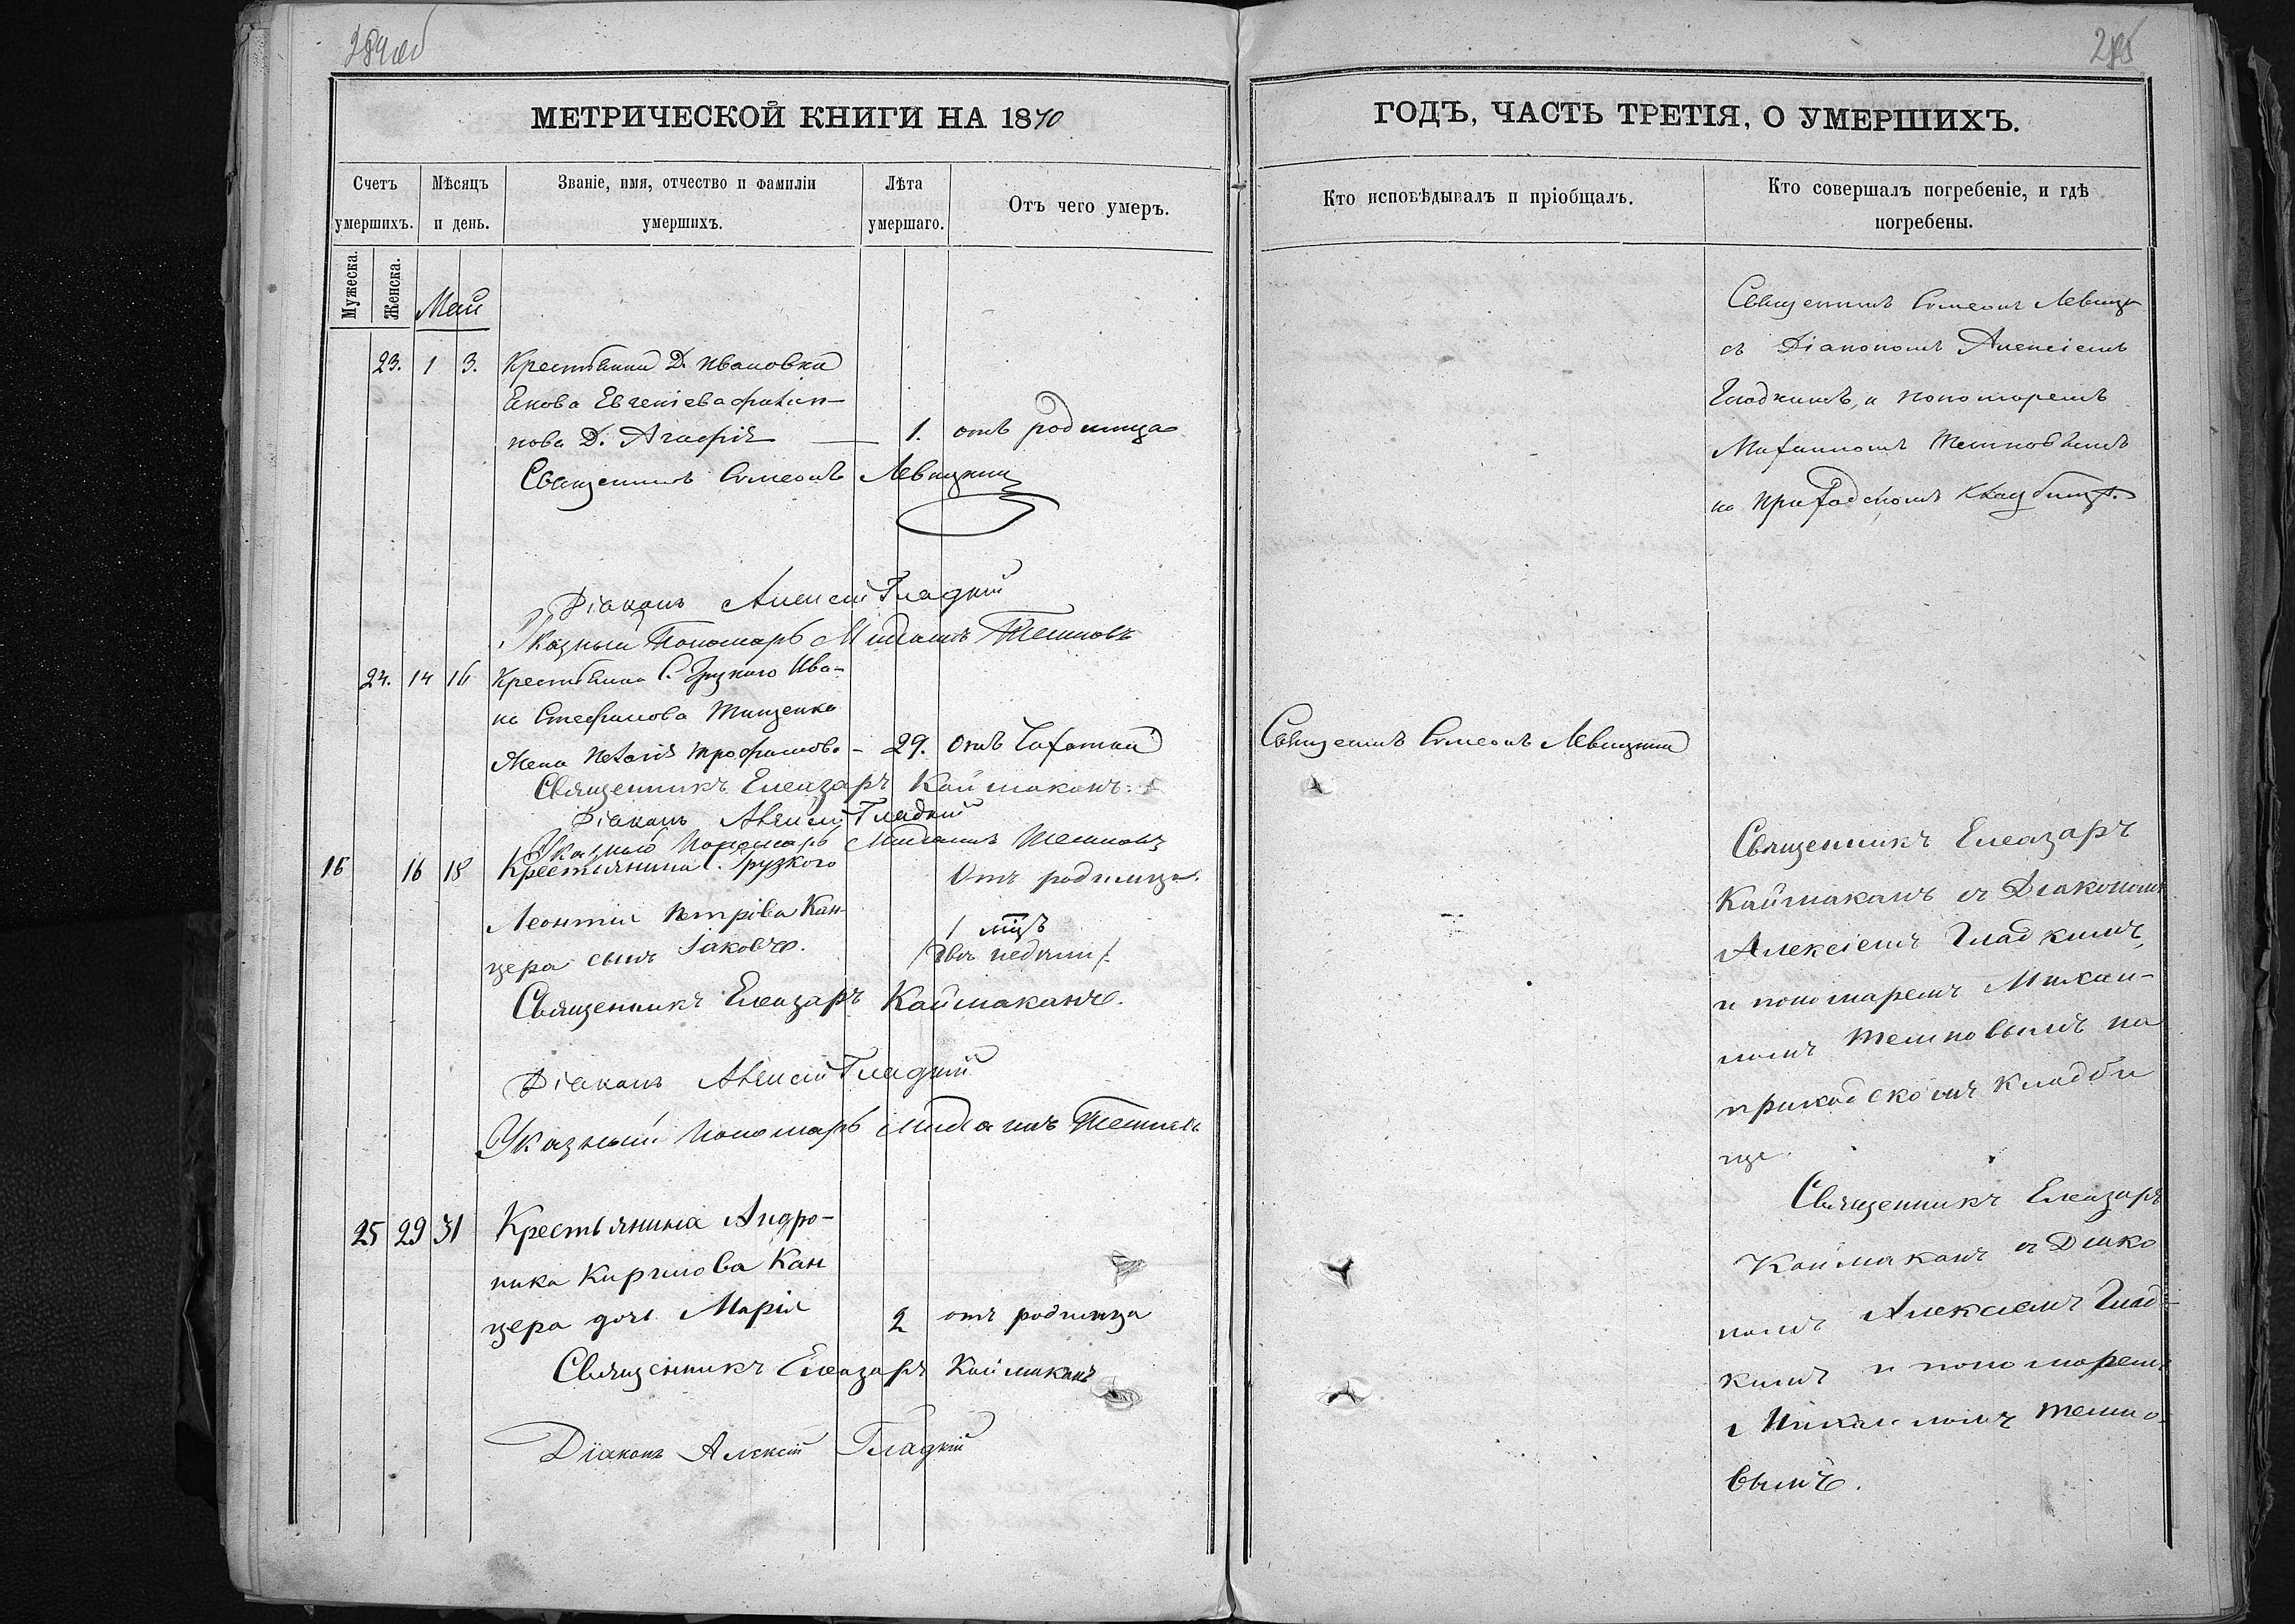 284об
285
МЕТРИЧЕСКОЙ КНИГИ НА 1870
ГОДЪ, ЧАСТЬ ТРЕТІЯ, О УМЕРШИХЪ.
Счетъ умершихъ.
Мѣсяцъ и день.
Званіе, имя, отчество и фамиліи умершихъ.
Лѣта умершаго.
Отъ чего умеръ.
Мужеска.
Женска.
Май
23. 1 3. Крестьянина Д. Ивановки
Евгеніева Филип-
пова Д. Агафія — 1. отъ родимца
Священникъ Симеонъ Левицкий
Діаконъ Алексій Гладкій
Указный Пономарь Михаилъ Темновъ
24. 14 16 Крестьянина С. Грузкого Ива-
на Стефанова Тищенка
Жена Трофимова - 29. отъ Чахотки
Священникъ Елеазаръ Каймаканъ
Діаконъ Алексій Гладкій
Указный Пономарь Михаилъ Темновъ
16 16 18 Крестьянина С. Грузкого Отъ родимца.
Леонтія Петрова Кан-
1 мцъ
цера сынъ Іаковъ. двѣ недѣли
Священникъ Елеазаръ Каймаканъ.
Діаконъ Алексій Гладкій
Указный Пономарь Михаилъ Темновъ
25 29 31 Крестьянина Андро-
ника Кирилова Кан
цера дочь Марія 2 отъ родимца
Священникъ Елеазаръ Каймаканъ
Діаконъ Алексій Гладкій
Кто исповѣдывалъ и пріобщалъ.
Кто совершалъ погребеніе, и гдѣ погребены.
Священникъ Симеонъ Левицк
съ Діакономъ Алексіемъ
Гладкимъ, и пономаремъ
Михаиломъ Темновымъ
на приходскомъ кладбищѣ.
Священникъ Симеонъ Левицкий
Священникъ Елеазаръ
Каймаканъ съ Діакономъ
Алексіемъ Гладкимъ,
и пономаремъ Михаи-
ломъ Темновымъ на
приходскомъ кладби
ще
Священникъ Елеазаръ
Каймаканъ съ Діако
номъ Алексіемъ Глад-
кимъ и пономаремъ
Михаиломъ Темно-
вымъ.